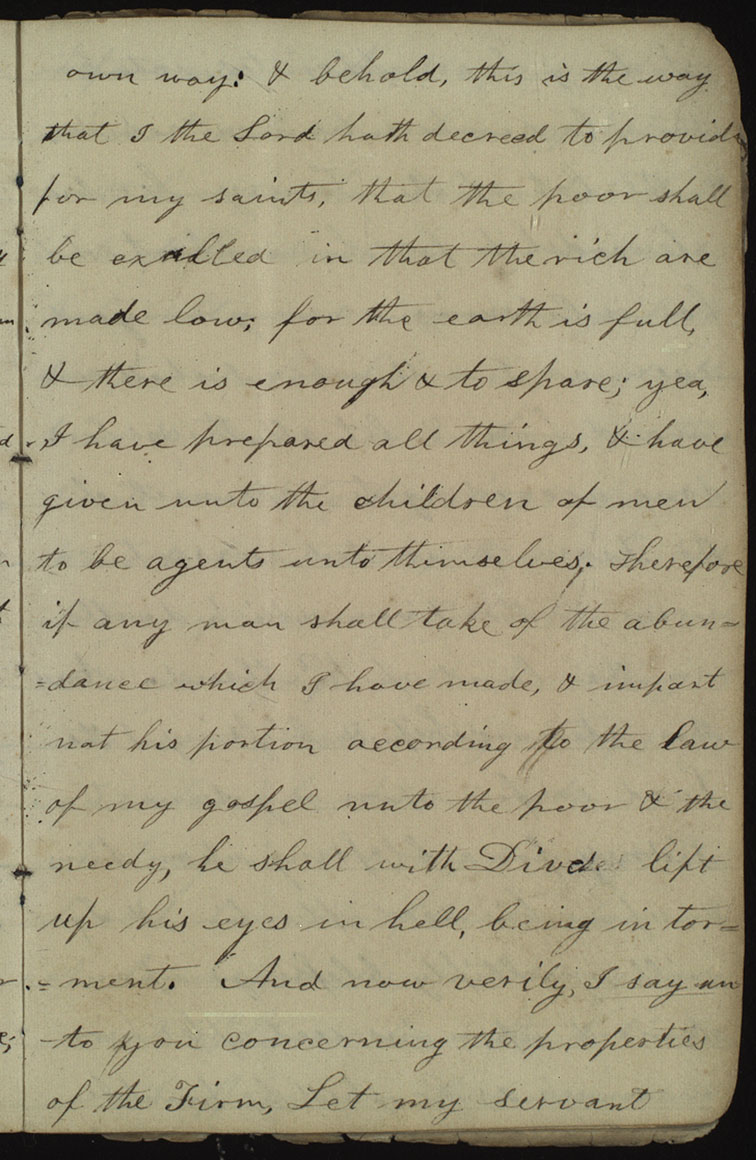 own way: & behold, this is the way
that I the Lord hath decreed to provide
for my saints, that the poor shall
be exalted in that the rich are
made low; for the earth is full,
& there is enough & to spare; yea,
I have prepared all things, & have
given unto the children of men
to be agents unto themselves. Therefore
if any man shall take of the abun=
=dance which I have made, & impart
not his portion according to the law
of my gospel unto the poor & the
needy, he shall with Dives lift
up his eyes in hell, being in tor=
=ment. And now verily, I say un
-to you concerning the properties
of the Firm, Let my servant